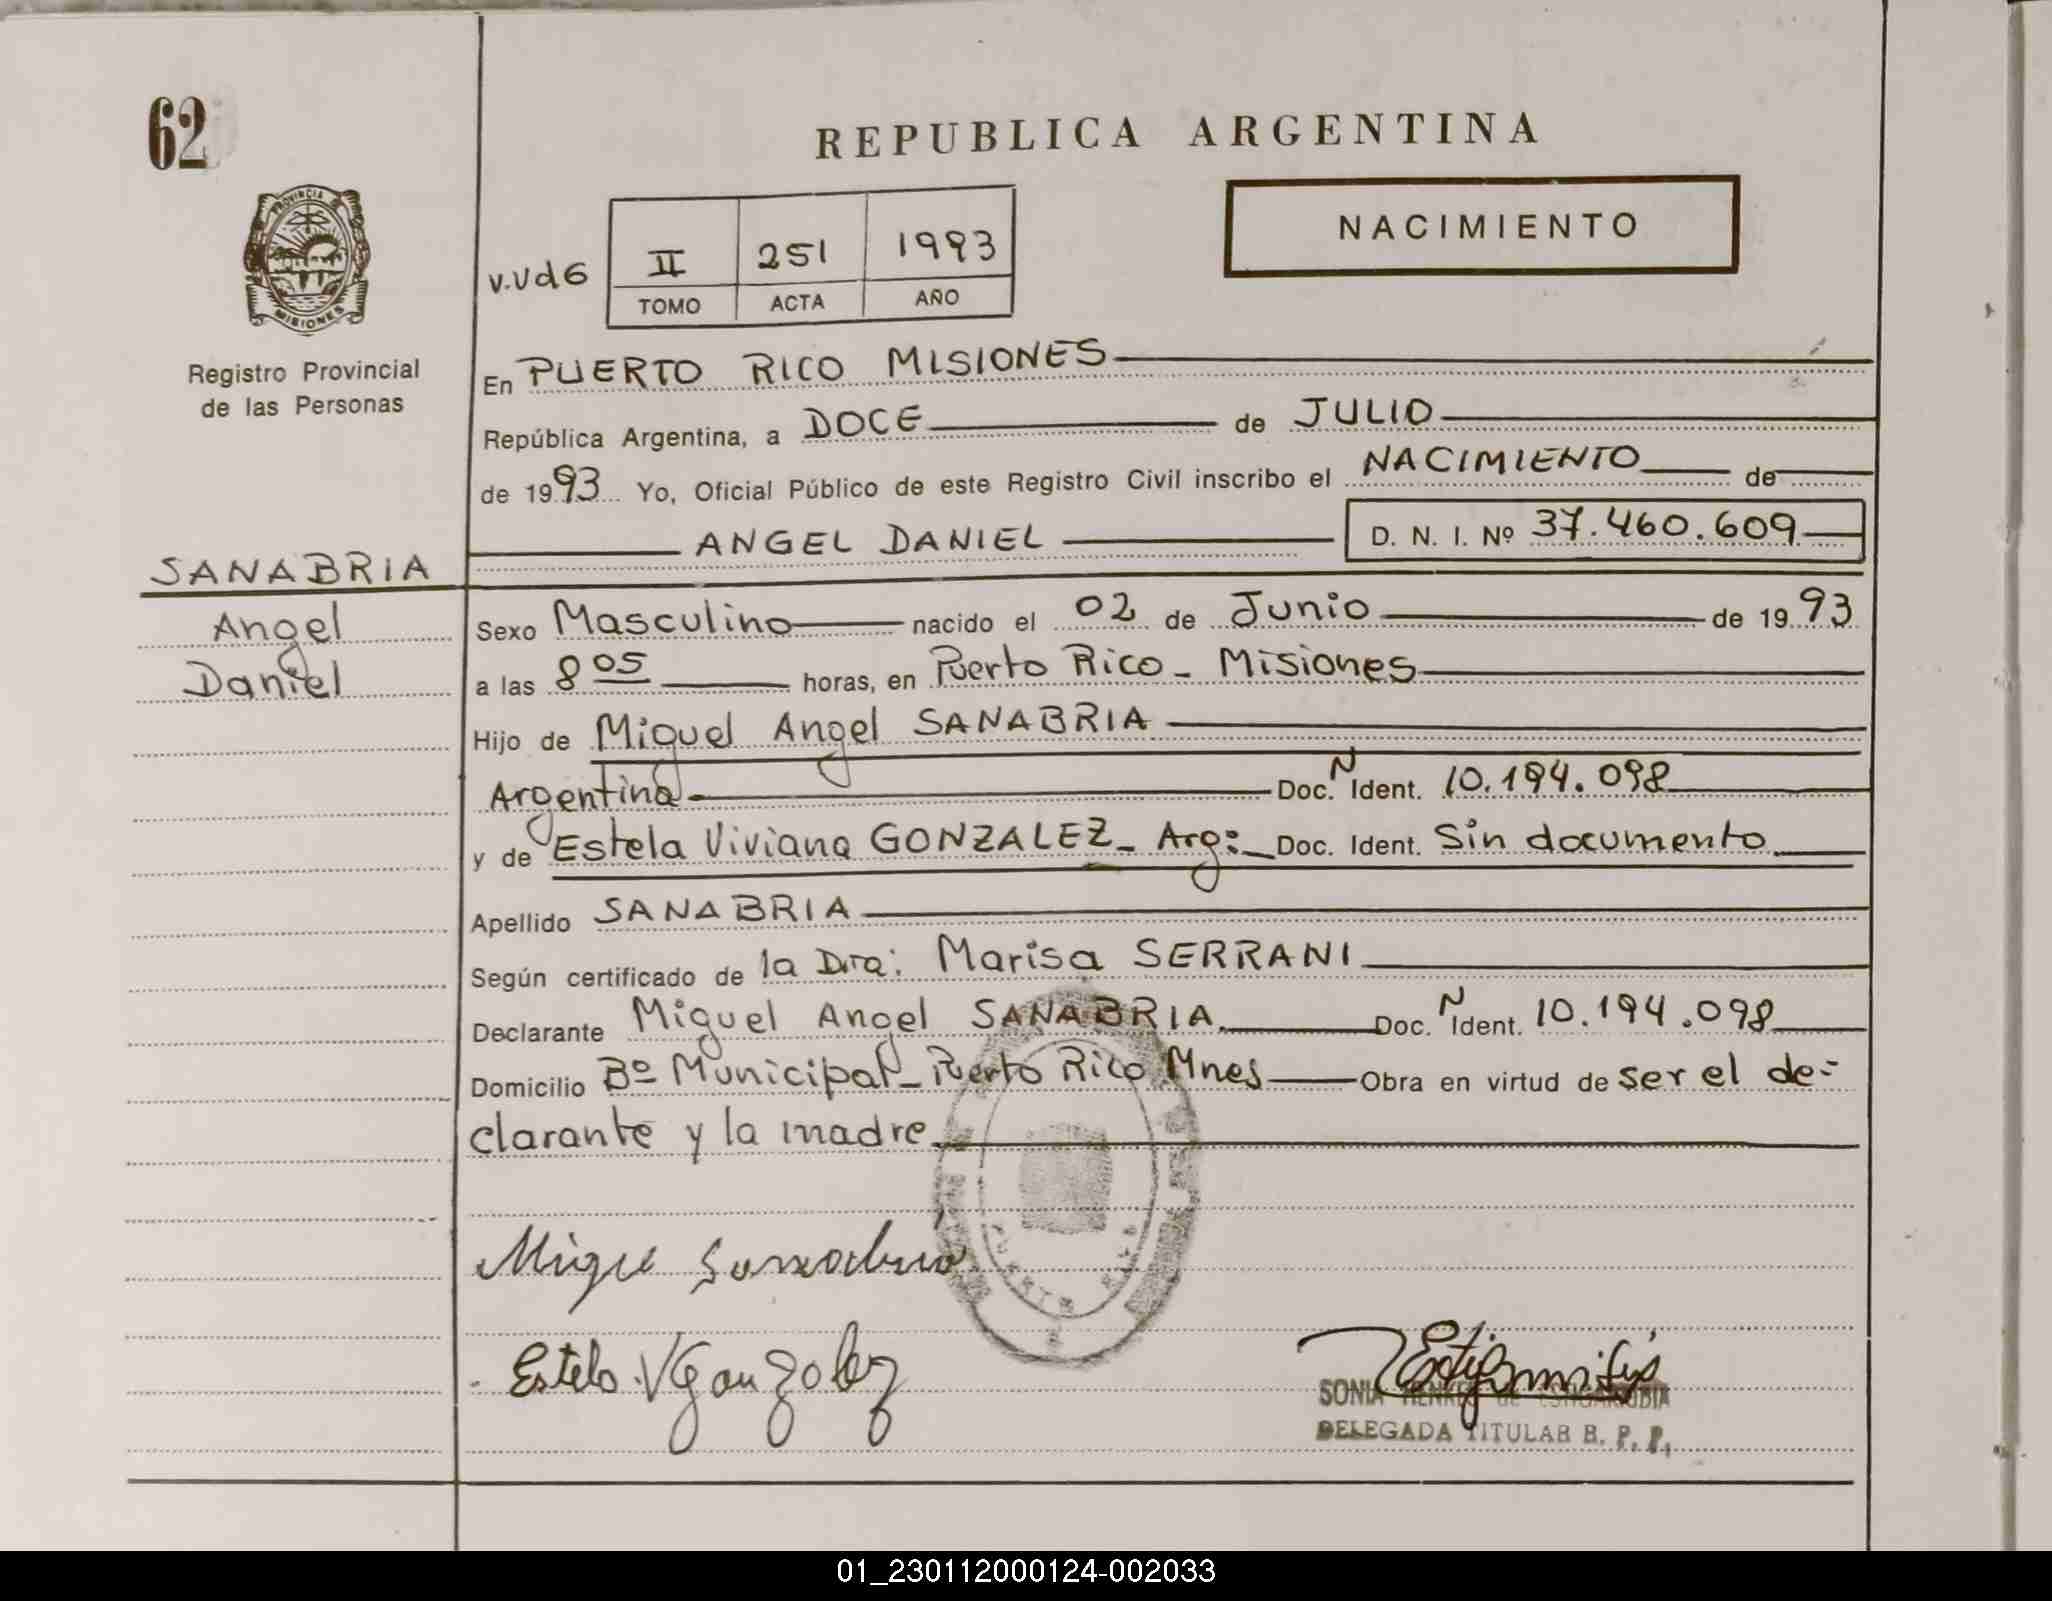 62
REPUBLICA ARGENTINA
PROVINCIA DE
MISIONES
Registro Provincial
de las Personas
V.Ud6
II 251 1993
TOMO ACTA AÑO
NACIMIENTO
En PUERTO RICO MISIONES
República Argentina, a DOCE de JULIO
de 1993 Yo, Oficial Público de este Registro Civil inscribo el NACIMIENTO de
ANGEL DANIEL D. N. I. Nº 37.460.609
SANABRIA
Angel
Daniel
Sexo Masculino nacido el 02 de Junio de 1993
a las 8 05 horas, en Puerto Rico - Misiones
Hijo de Miguel Angel SANABRIA
Argentina Doc. N Ident. 10.194.098
y de Estela Viviana GONZALEZ - Arg: Doc. Ident. Sin documento
Apellido SANABRIA
Según certificado de la Dra: Marisa SERRANI
Declarante Miguel Angel SANABRIA Doc. N Ident. 10.194.098
Domicilio Bº Municipal - Puerto Rico Mnes Obra en virtud de ser el de-
clarante y la madre
PUERTO RICO
Estela V Gonzalez
SONIA
DELEGADA TITULAR R. P. P.
01_230112000124-002033